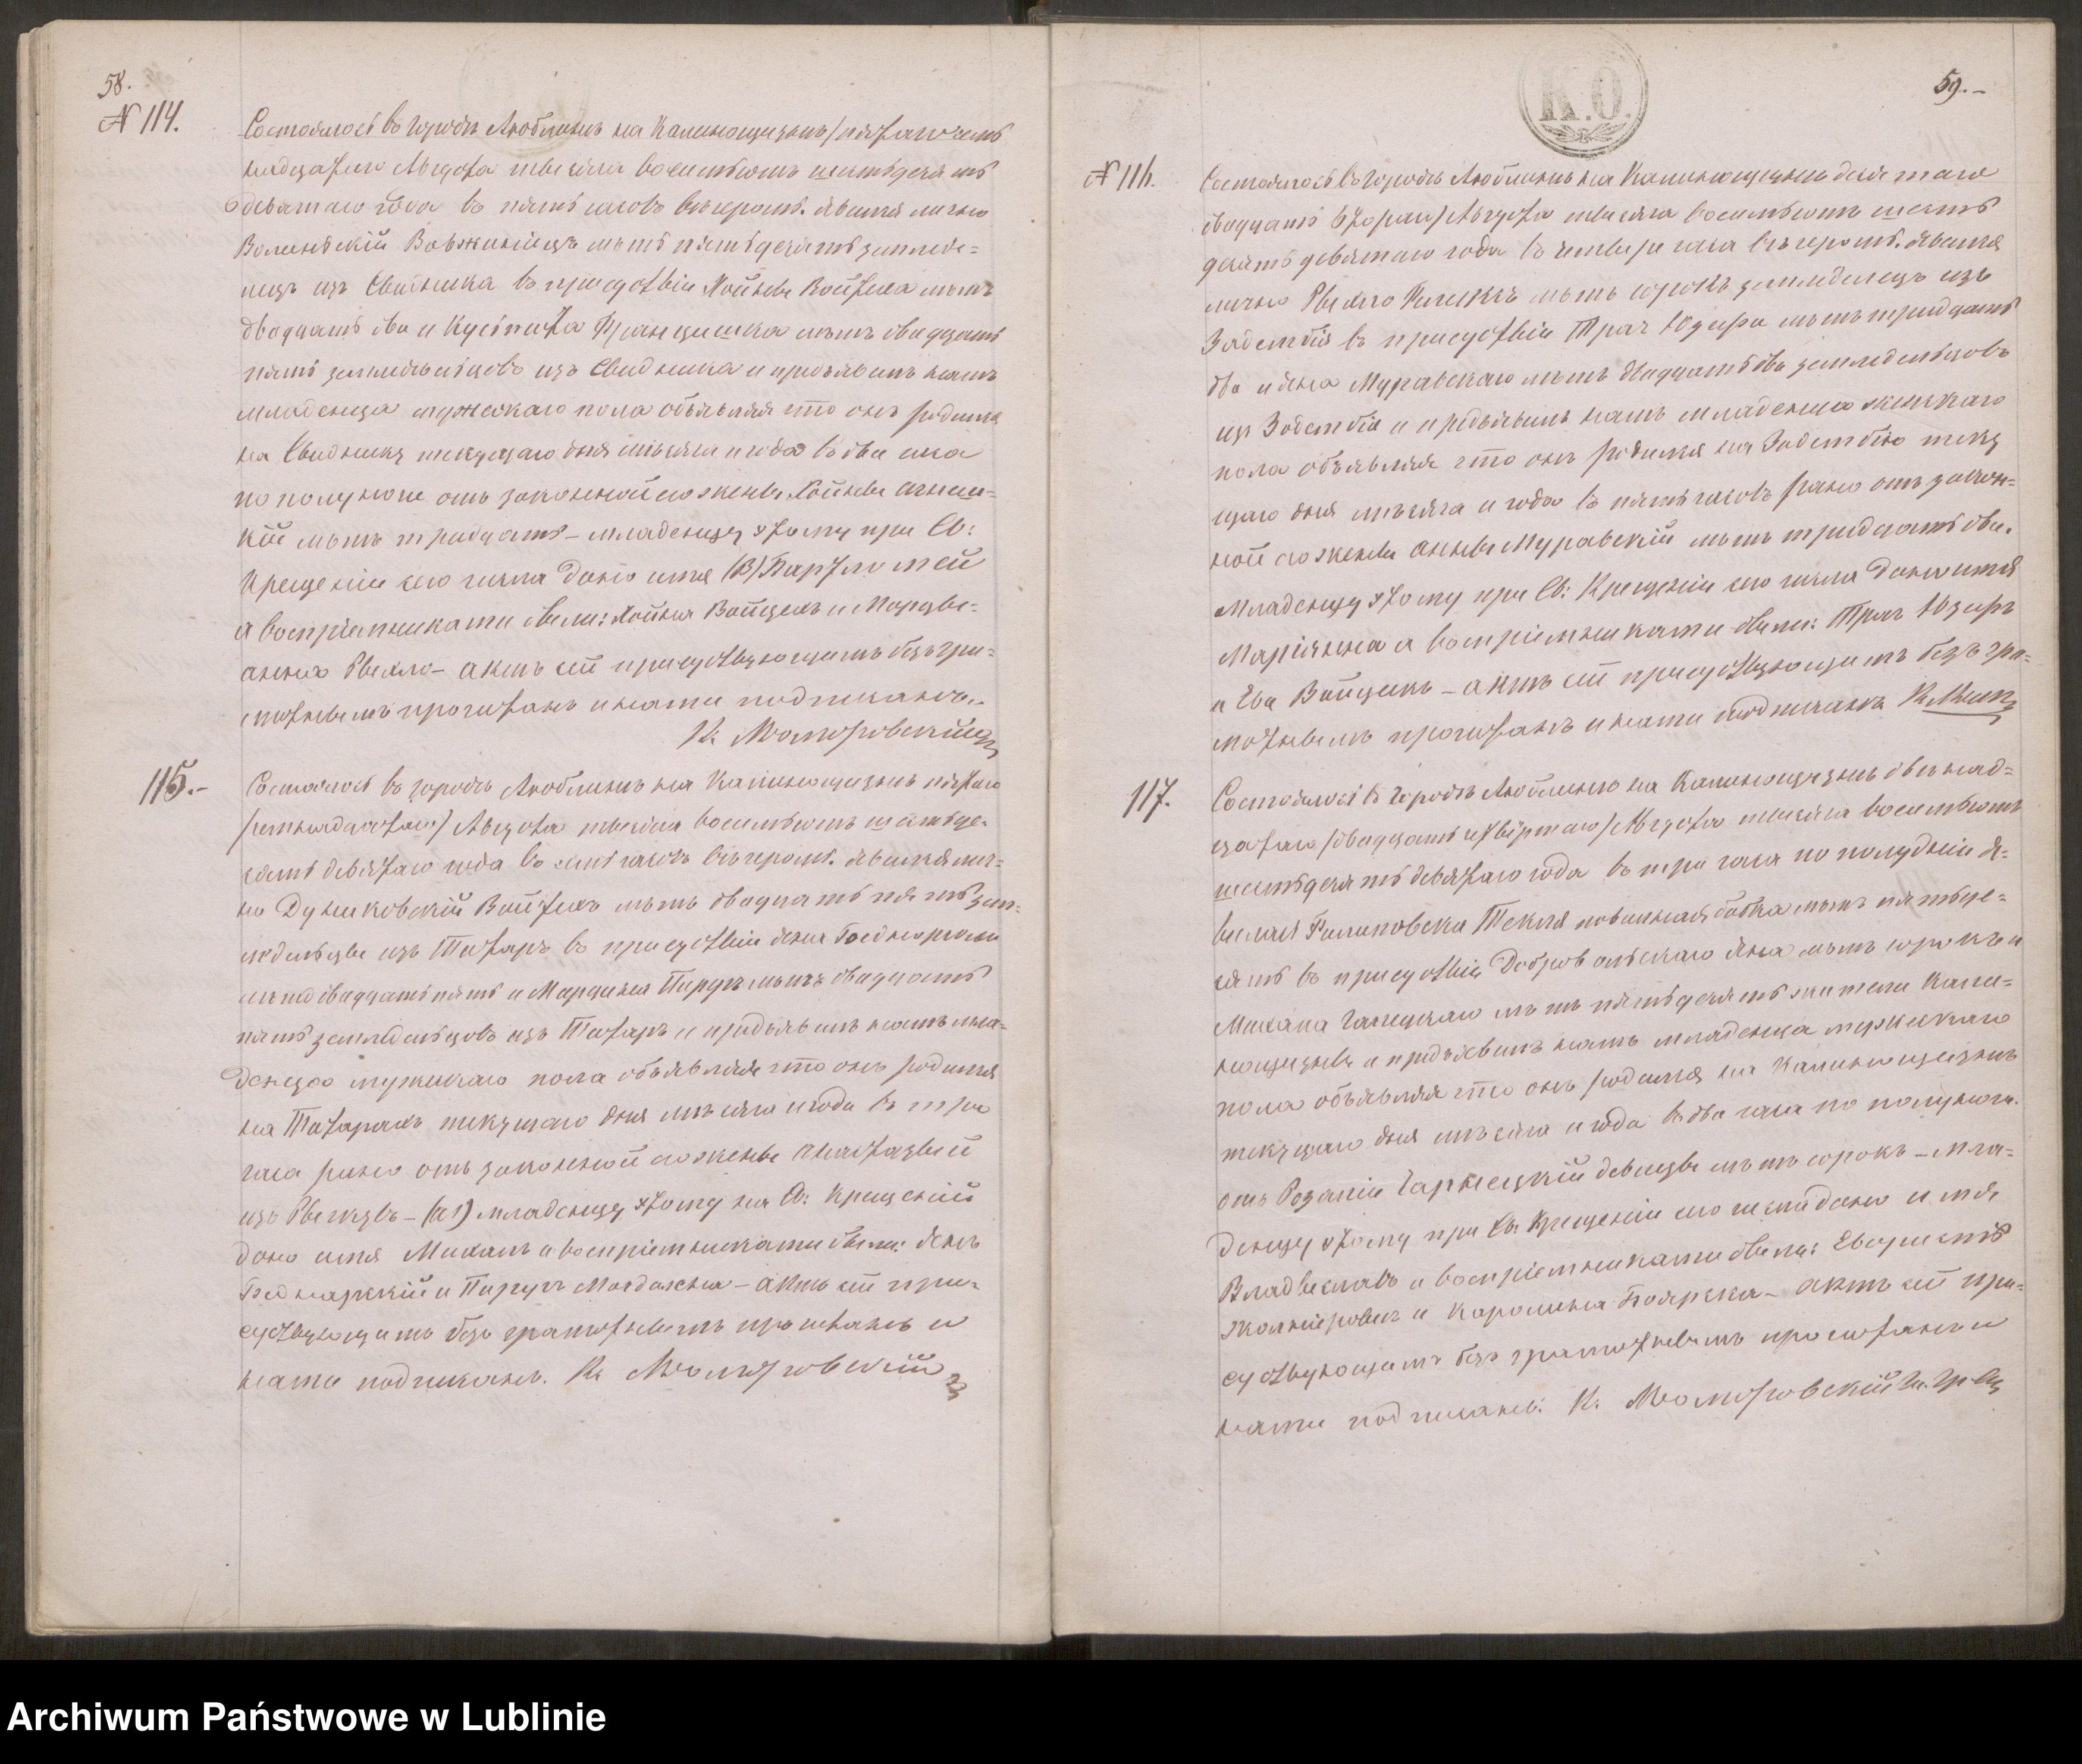 58.
№ 114.
Состоялось въ городѣ Люблинѣ на Калиновщизнѣ /пятаго/ семь
надцатаго Августа тысяча восемьсотъ шестьдесятъ
девятаго года въ пять часовъ вечеромъ. явился лично
Волинскій лѣтъ пятьдесятъ земледе=
лецъ изъ Свидника въ присутствіи Хойны Войтеха лѣтъ
двадцать два и Францишка лѣтъ двадцать
пять земледѣльцовъ изъ Свидника и предъявилъ намъ
младенца мужескаго пола объявляя что онъ родился
на Свиднику текущаго дня мѣсяца и года въ два часа
по полуночи отъ законной его жены Хойны Агнеш=
кій лѣтъ тридцать – младенцу этому при Св:
Крещеніи его числа дано имя (В) Бартломей
а воспріемниками были: Хойна Войцехъ и Мар=
анна Рыхло – актъ сей присутствующимъ безгра=
мотнымъ прочитанъ и нами подписанъ.
К.
115.–
Состоялось въ городѣ Люблинѣ на Калиновщизнѣ пятаго
/семнадцатаго/ Августа тысяча восемьсотъ шестьде=
сятъ девятаго года въ часовъ вечеромъ. явился лич=
но Душковскій Войтехъ лѣтъ двадцать пять зем=
ледельцы изъ Татаръ въ присутствіи Яна
лѣтъ двадцать пять и Марцина лѣтъ двадцать
пять земледельцовъ изъ Татаръ и предъявилъ намъ мла=
денца мужескаго пола объявляя что онъ родился
на Татарахъ текущаго дня мѣсяца и года въ три
часа рано отъ законной его жены Анастазыи
изъ – (а1) младенцу этому на Св: Крещеніи
дано имя Михалъ а воспріемниками были: Янъ
Беднарскій и Магдалена – актъ сей при=
сутствующимъ безграмотнымъ прочитанъ и
нами подписанъ. К.
К.О.
59.–
№ 116.
Состоялось въ городѣ Люблинѣ на Калиновщизнѣ десятаго
/двадцать втораго/ Августа тысяча восемьсотъ шесть
десятъ девятаго года въ четыре часа вечеромъ. явился
лично Рыхло лѣтъ сорокъ земледелецъ изъ
Задембія въ присутствіи Трач Юзефа лѣтъ тридцать
два и Яна Муравскаго лѣтъ двадцать два земледельцовъ
изъ Задембія и предъявилъ намъ младенца женскаго
пола объявляя что онъ родился на Задембію теку
щаго дня мѣсяца и года въ пять часовъ рано отъ закон=
ной его жены Анны Муравскій лѣтъ тридцать два.
Младенцу этому при Св: Крещеніи его числа дано имя
Маріанна а воспріемниками были: Трач Юзефъ
и Ева Войцикъ – актъ сей присутствующимъ безъ гра=
мотнымъ прочитанъ и нами подписанъ
117.
Состоялось въ городѣ Люблинѣ на Калиновщизнѣ двенад=
цатаго /двадцать четвертаго/ Августа тысяча восемьсотъ
шестьдесятъ девятаго года въ три часа по полудніи я=
вилася Текля повивная бабка лѣтъ пятьде=
сятъ въ присутствіи Добровольскаго Яна лѣтъ сорокъ и
Михала лѣтъ пятьдесятъ жители Кали=
новщизны и предъявилъ намъ младенца мужескаго
пола объявляя что онъ родился на Калиновщизнѣ
текущаго дня мѣсяца и года въ два часа по полуночи
отъ Розаліи Чарнецкій девицы лѣтъ сорокъ – Мла=
денцу этому при Св: Крещеніи его числа дано имя
Владыславъ а воспріемниками были: Еваристъ
и Каролина Боярска – актъ сей при=
сутствующимъ безъ грамотнымъ прочитанъ и
нами подписанъ. К.
Archiwum Państwowe w Lublinie